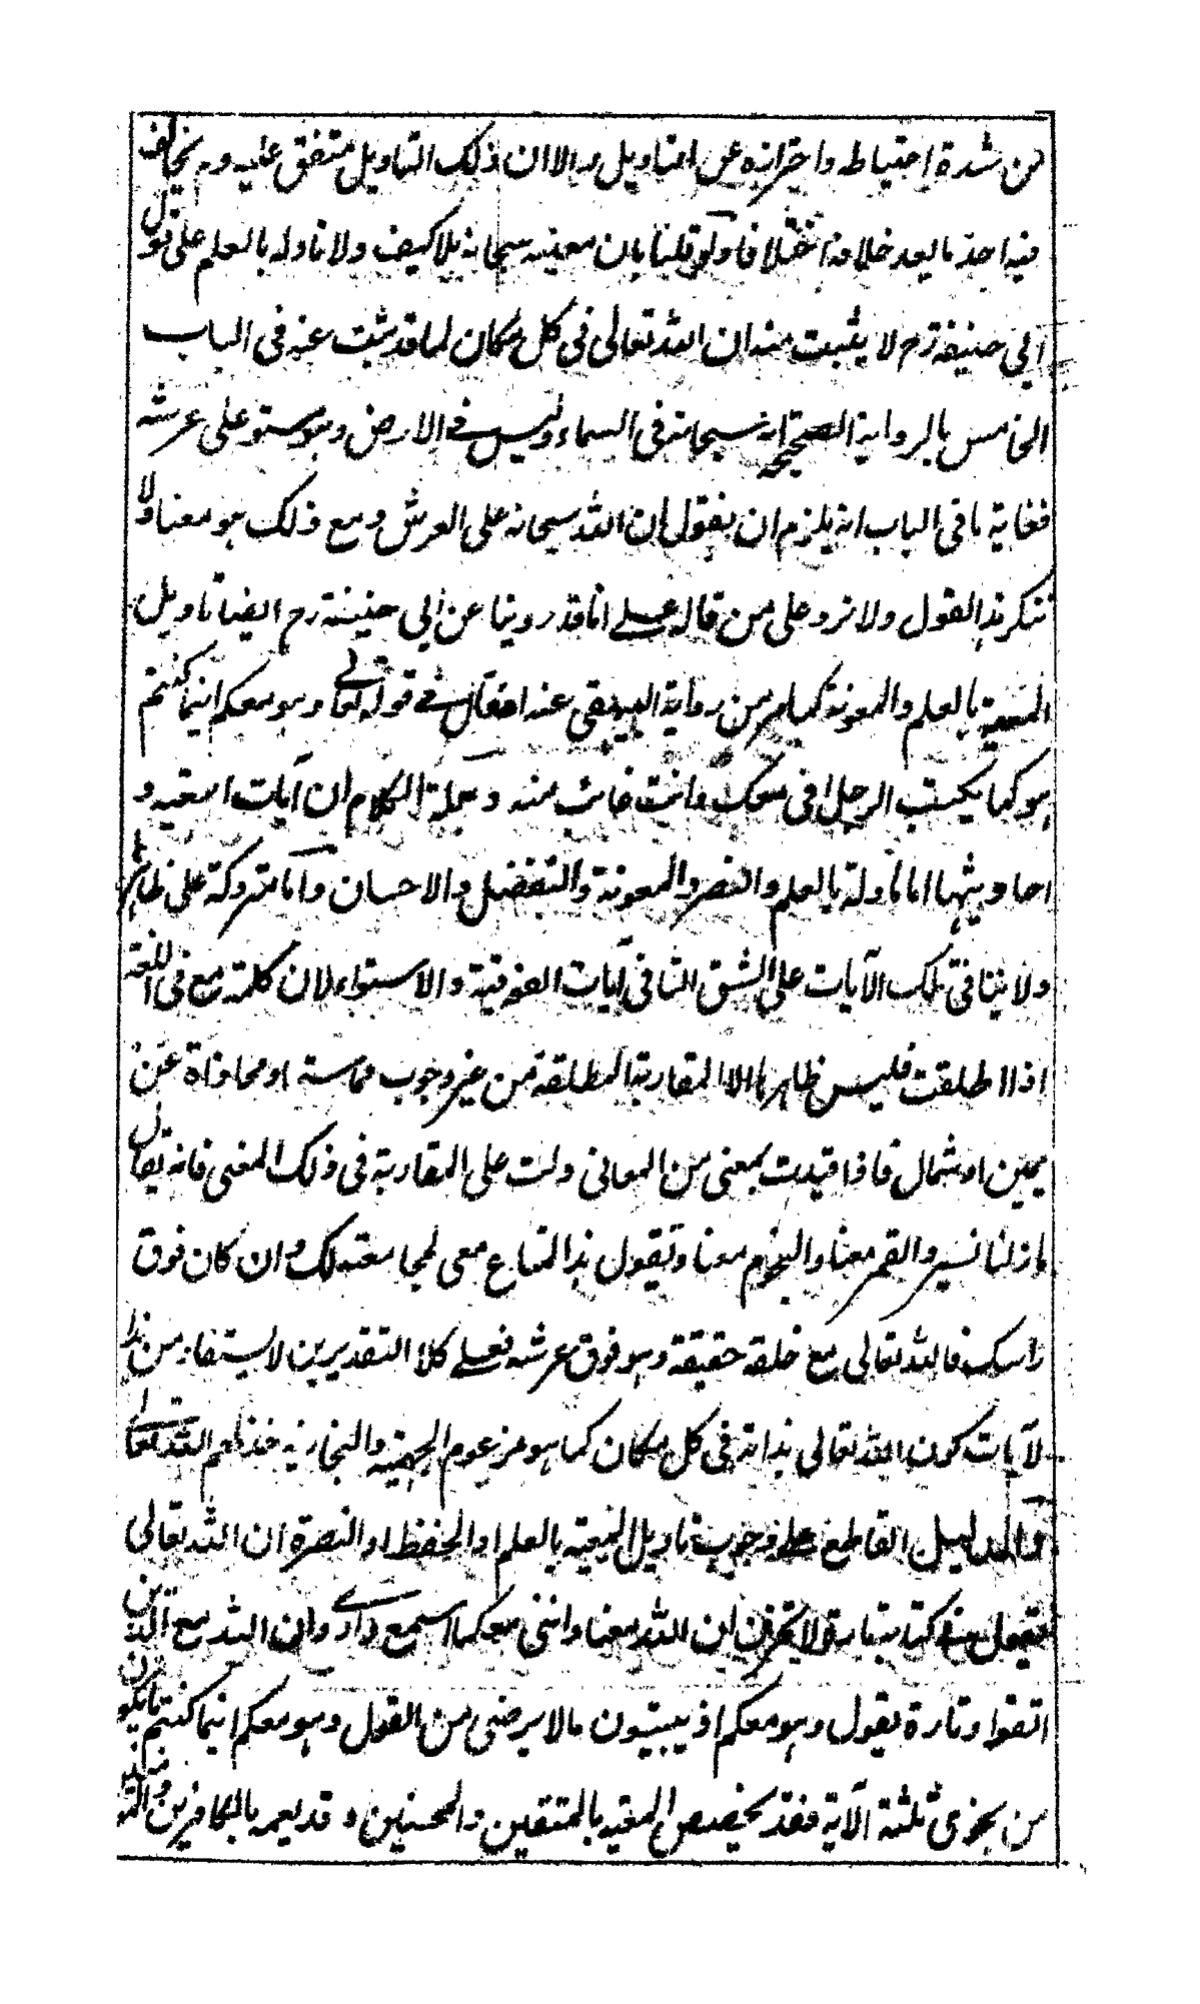 من شدة احتياطه واحترازه عن التاويل والا ان ذلك التاويل متفق عليه ولم يخالف
فيه احد ما يعد خلافه اختلافا ولو قلنا بان معيته سبحانه بلا كيف ولا ناوله بالعلم على قول
ابي حنيفة رح لا يثبت منه ان الله تعالى في كل مكان لما قد ثبت عنه في الباب
الخامس بالرواية الصحيحة انه سبحانه في السماء وليس في الارض وهو مستو على عرشه
فغاية ما في الباب انه يلزم ان يقول ان الله سبحانه على العرش ومع ذلك هو معنا ولا
ننكر هذا القول ولا نرد على من قاله على انا قد روينا عن ابي حنيفة رح ايضا تاويل
المعية بالعلم والمعونة كما مر من رواية البيهقي عنه انه قال في قوله تعالى وهو معكم اينما كنتم
هو كما يكتب الرجل اني معك وانت غائب منه وجملة الكلام ان آيات المعية و
احاديثها اما ماولة بالعلم والنصر والمعونة والتفضل والاحسان واما متروكة على ظاهرها
ولا ينافي تلك الآيات على الشق الثاني آيات الفوقية والاستواء لان كلمة مع في اللغة
اذا اطلقت فليس ظاهرها الا المقاربة المطلقة من غير وجوب مماسة او محاذاة عن
يمين او شمال فاذا قيدت بمعنى من المعاني دلت على المقاربة في ذلك المعنى فانه يقال
ما زلنا نسير والقمر معنا والنجم معنا وتقول هذا المتاع معي لمجامعته لك وان كان فوق
راسك فالله تعالى مع خلقه حقيقة وهو فوق عرشه فعلى كلا التقديرين لا يستفاد من هذه
الآيات كون الله تعالى بذاته في كل مكان كما هو مزعوم الجهمية والنجارية خذلهم الله تعالى
والدليل القاطع على وجوب تاويل المعية بالعلم او الحفظ او النصرة ان الله تعالى
يقول في كتابه تارة لا تحزن ان الله معنا وانني معكما اسمع وارى وان الله مع الذين
اتقوا وتارة يقول وهو معكم اذ يبيتون ما لا يرضى من القول وهو معكم اينما كنتم ما يكون
من نجوى ثلثة الآية فقد يخصص المعية بالمتقين والمحسنين وقد يعمه بالكافرين